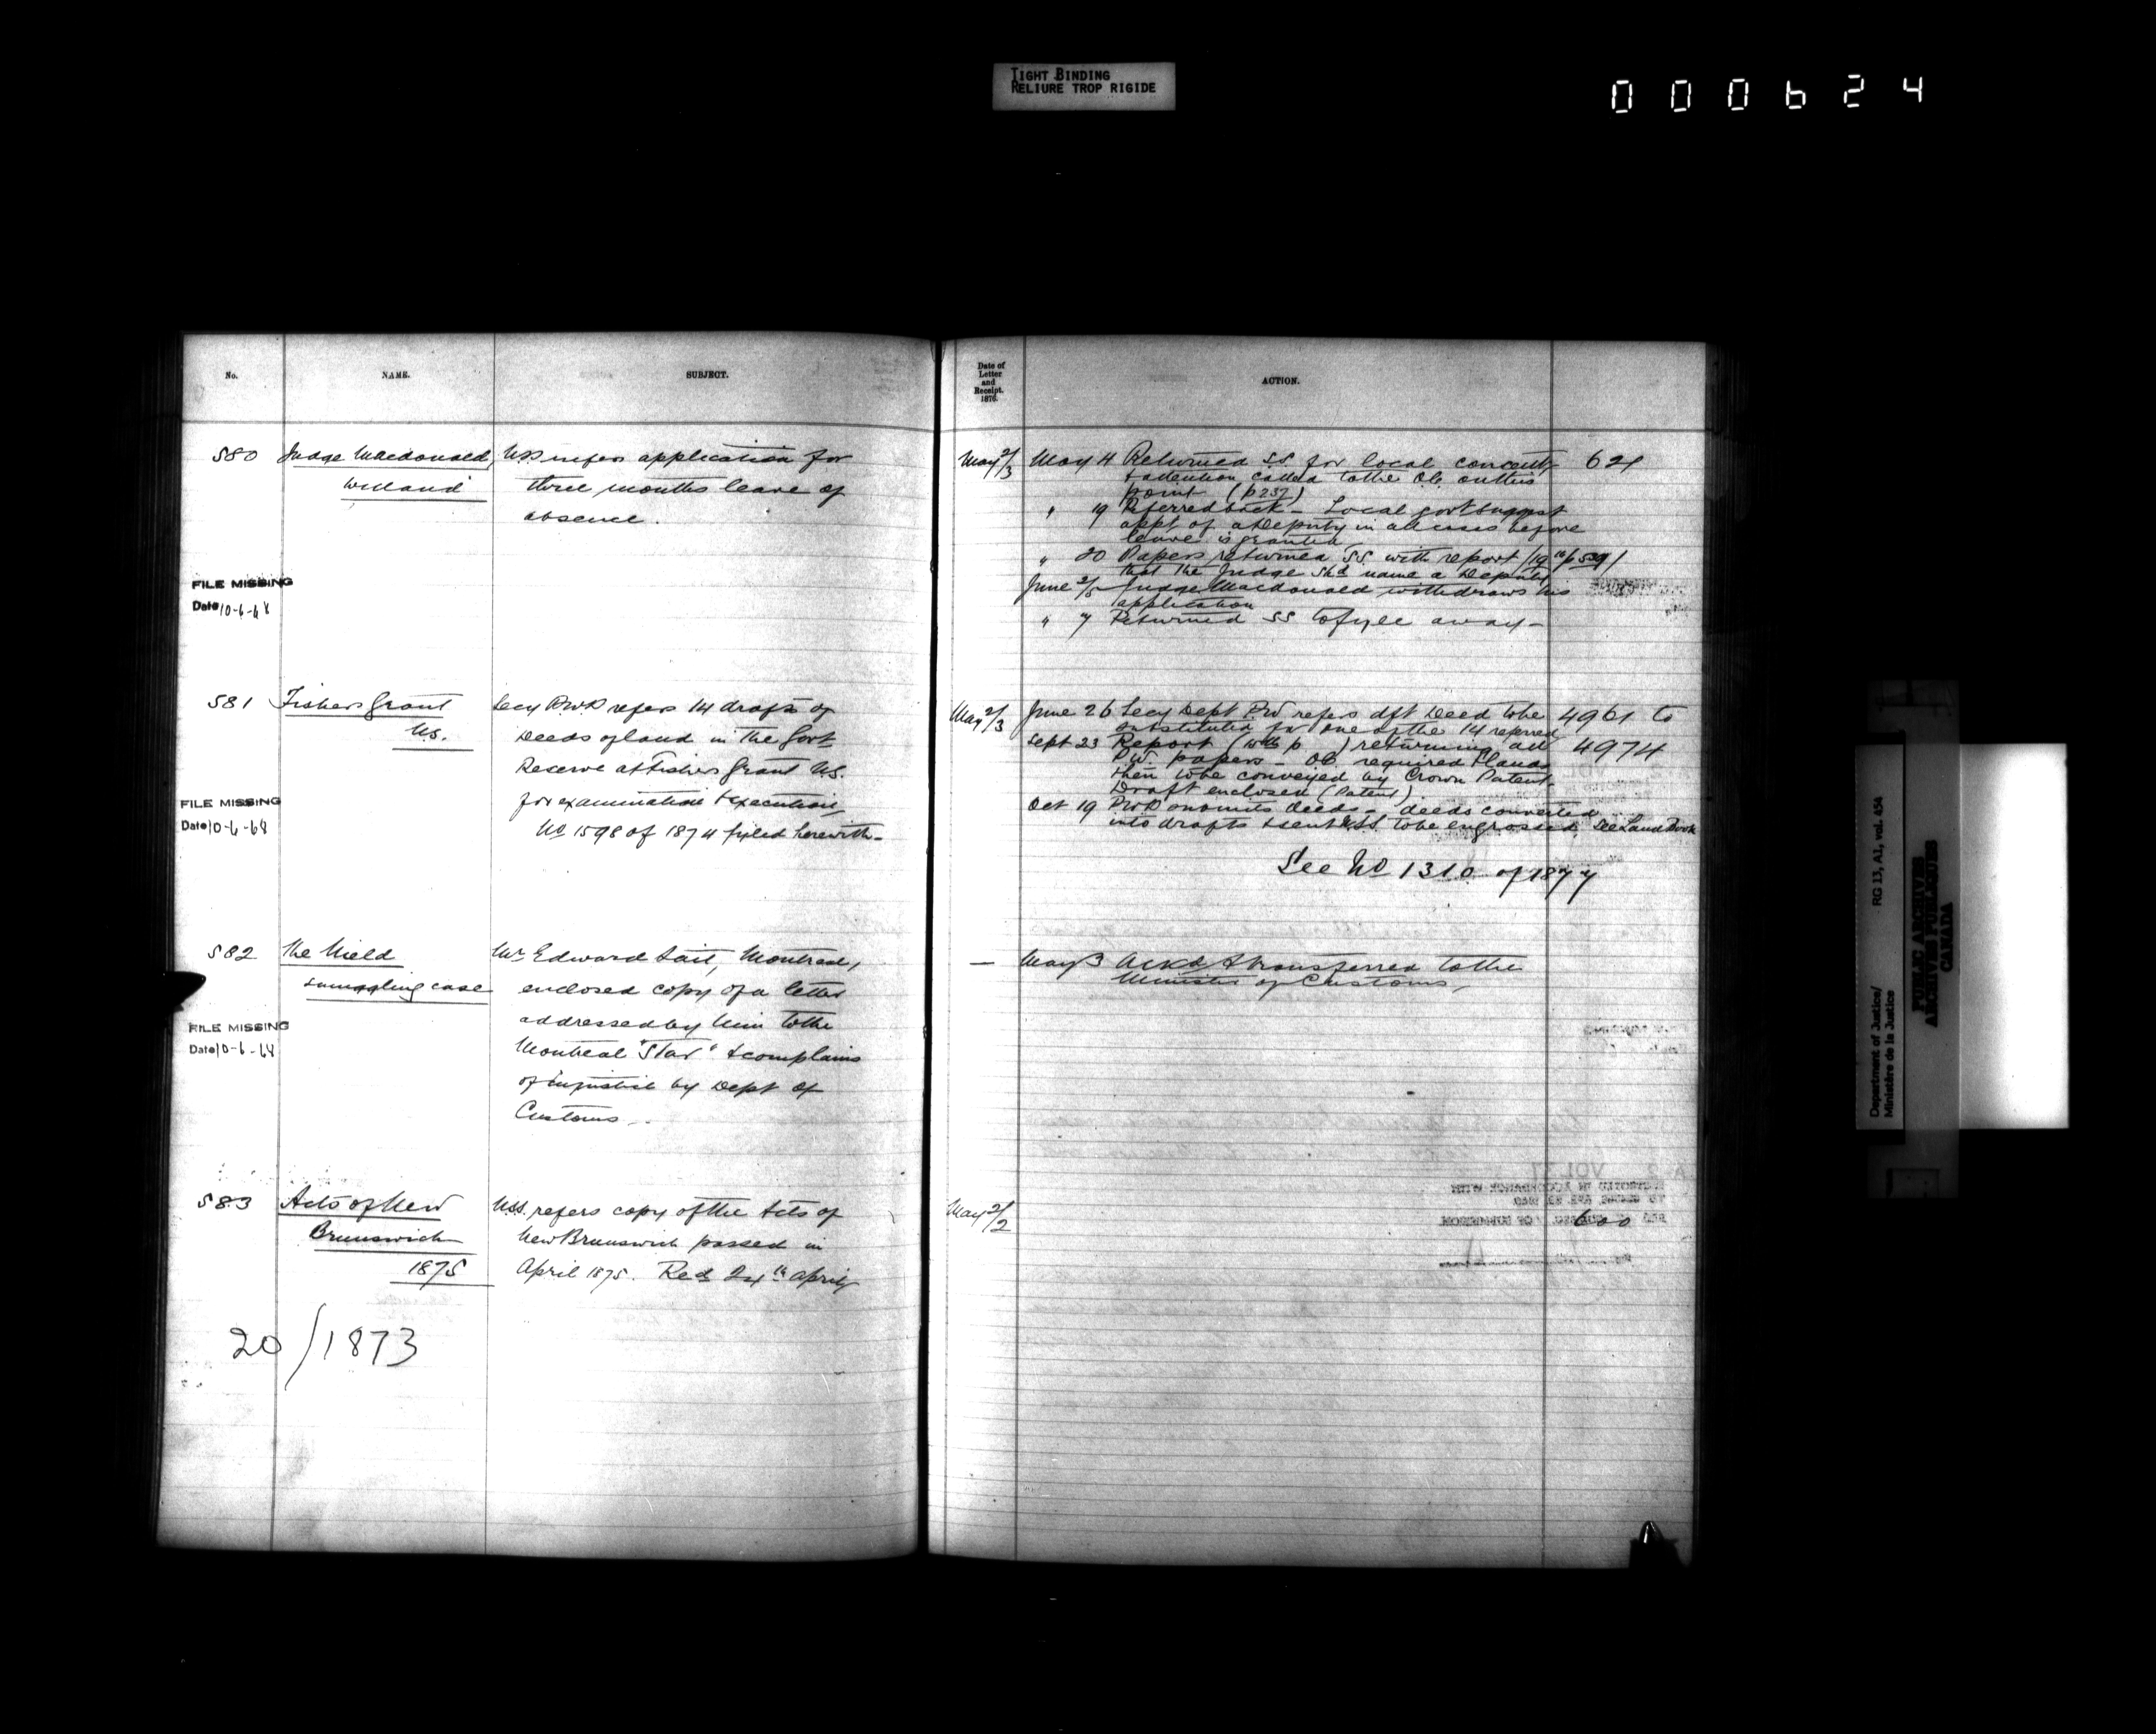 TIGHT BINDING
RELIURE TROP RIGIDE
000624
No.
NAME.
SUBJECT.
580
Judge Macdonald,
Welland
USS refers application for
three months leave of
absence.
FILE MISSING
Date 10-6-68
581
Fishers Grant
N.S.
Secy P.W.D refers 14 drafts of
Deeds of land in the Govt
Reserve at Fishers Grant N.S.
for examination & execution,
No 1598 of 1874 fyled herewith-
FILE MISSING
Date 10-6-68
582
The Nield
Smuggling case
Mr Edward Tait, Montreal,
enclosed copy of a letter
addressed by him to the
Montreal "Star" & complains
of injustice by Dept of
Customs.
FILE MISSING
Date 10-6-68
583
Acts of New
Brunswick
1875
USS. refers copy of the Acts of
New Brunswick passed in
April 1875. Recd 24th April
20/1873
Date of
Letter
and
Receipt.
1876.
ACTION.
May 2/3
May 4 Returned SS for local concent,
& attention called to the O.C. on this
point (p 237)
" 19 Referred back - Local govt suggest
appt of a Deputy in all cases before
leave is granted
" 20 Papers returned SS. with report (19th p 529)
that the Judge shd name a Deputy
June 3/5 Judge Macdonald withdraws his
application
" 7 Returned SS to fyle away-
621
May 2/3
June 26 Secy Dept P.W refers dft Deed to be
substituted for one of the 14 referred
Sept 23 Report (with p ) returning all
P.W. papers - O.C. required & lands
then to be conveyed by Crown Patent.
Draft enclosed (Patent)
Oct 19 PWD deeds - deeds converted
into drafts & sent USS. to be engrossed. See Land Book
4961 to
4974
See No 1310 of 1877
— May 3 Ackd & transferred to the
Minister of Customs,
May 2/2
600
Department of Justice/ RG 13, A1, vol. 454
Ministère de la Justice
PUBLIC ARCHIVES
ARCHIVES PUBLIQUES
CANADA